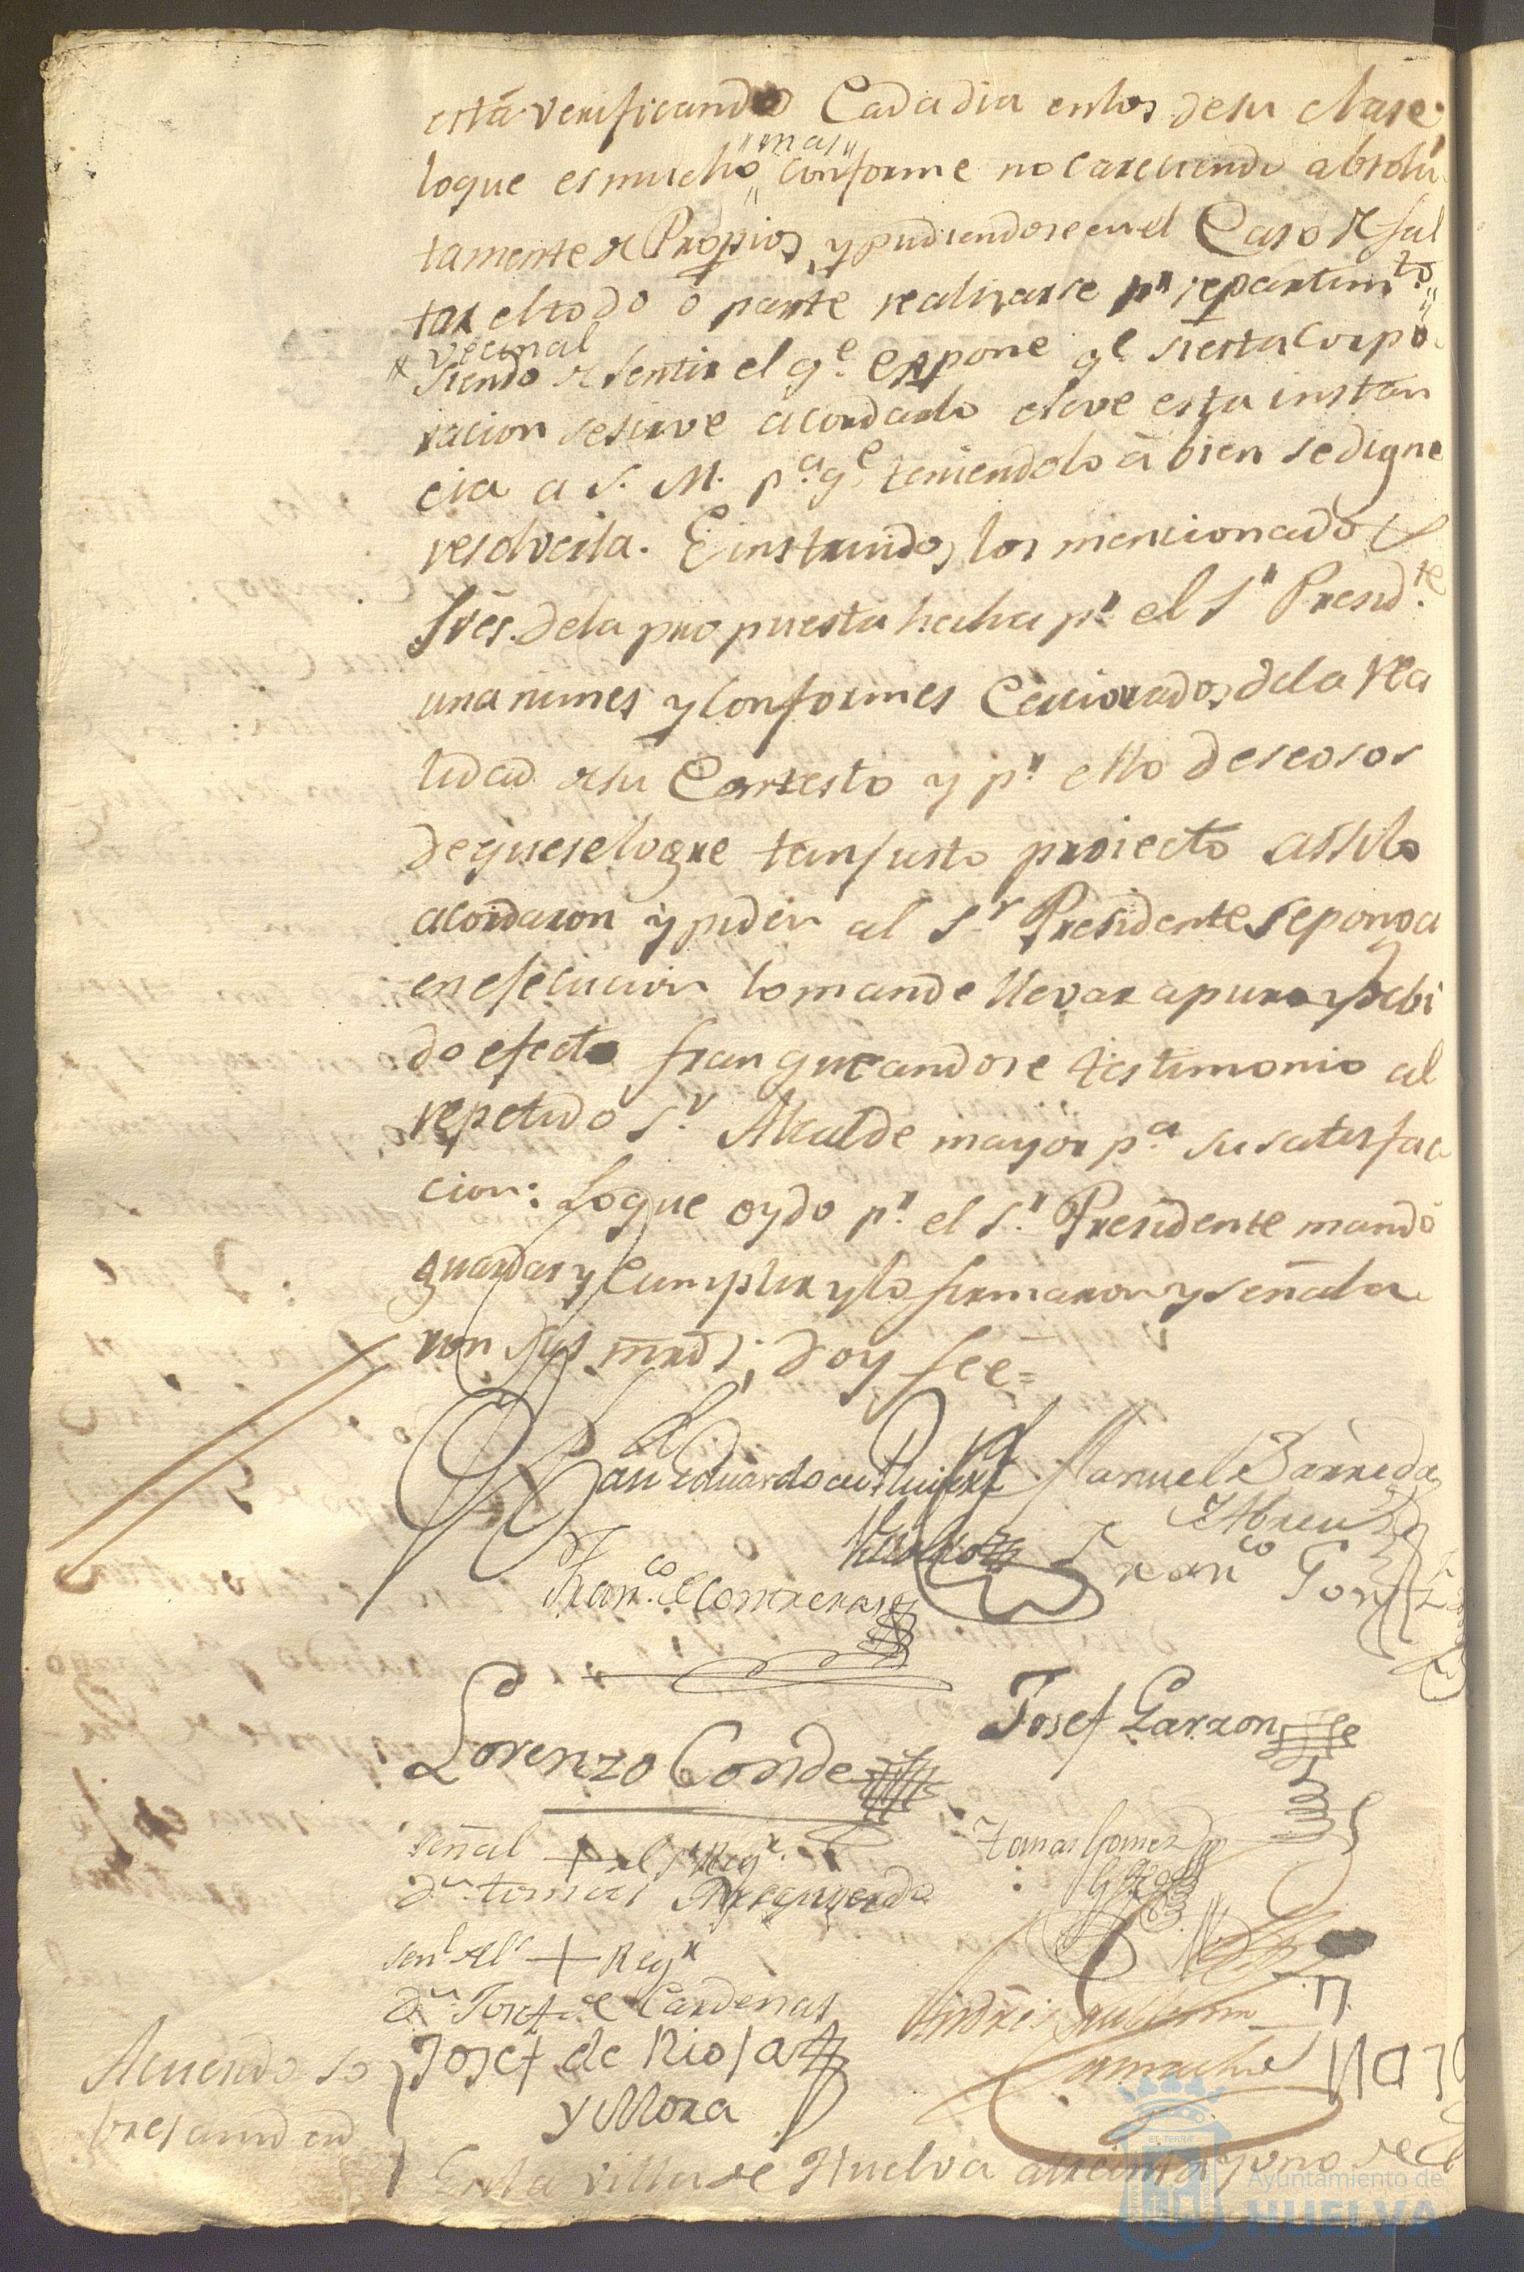 está verificando Cada dia en los de su clase
"mas"
loque es mucho conforme no careciendo absolu
tamente de Propios, y pudiendose en el Caso de fal
tar el todo ó parte realizarse pr. repartimto.
vecinal
siendo de sentir el qe. expone qe. si esta Corpo
racion se sirve acordarlo eleve esta instan
cia a S. M. pa. qe. teniendolo á bien se digne
resolverla. E instruidos los mencionados
Sres. de la propuesta hecha pr. el Sr. Presidte.
unanimes y Conformes Cerciorados de la rea
lidad de su Contesto y pr. ello deseosos
de que se logre tan justo proiecto assi lo
acordaron y piden al Sr. Presidente se ponga
en efecucion lo mande llevar a puro y debi
do efecto franqueandose testimonio al
repetido Sr. Alcalde mayor pa. su satisfac
cion: Loque oydo pr. el Sr. Presidente mandó
guardar y Cumplir y lo firmaron y señala
ron sus mrds; doy fee=
Manuel Barreda
y Abreu
Franco. de Contreras
Franco
Josef Garzon
Lorenzo Conde
señal + del Sr. Regr.
Tomas Gomez
Dn. tomas
senl. del Sr + Regr
Dn. Josef de Cardenas
Josef de Rioja
y Mora
Camacho
Acuerdo so
bre
En la villa de Huelva a treinta y uno de
Ayuntamiento de
HUELVA